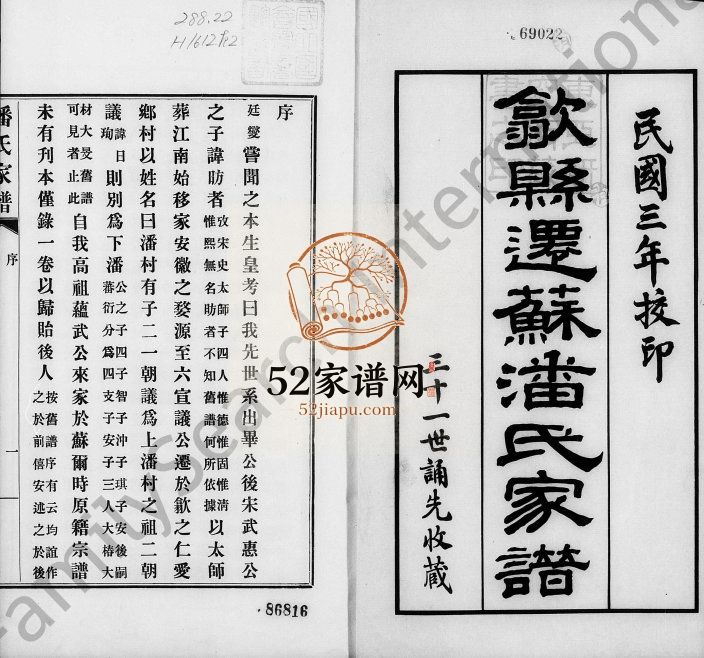 69022
民國三年挍印
歙縣遷蘇潘氏家譜
三十一世誦先收藏
288.22
序
廷燮嘗聞之本生皇考曰我先世系出畢公後宋武惠公
之子諱昉者攷宋史太師子四人惟德惟固惟清惟熙無名昉者不知舊譜何所依據以太師
葬江南始移家安徽之婺源至六宣議公遷於歙之仁愛
鄉村以姓名曰潘村有子二一朝議爲上潘村之祖二朝
議諱日珣則別爲下潘公之子四子智子沖子琪子安後嗣蕃衍分爲四支子安子三人大椿大
材大旻舊譜可見者止此自我高祖蘊武公來家於蘇爾時原籍宗譜
未有刊本僅錄一卷以歸貽後人按舊譜序有云均誼作之於前僖安述之於後
潘氏家譜
序
一
86816
52家谱网
52jiapu.com
FamilySearch International